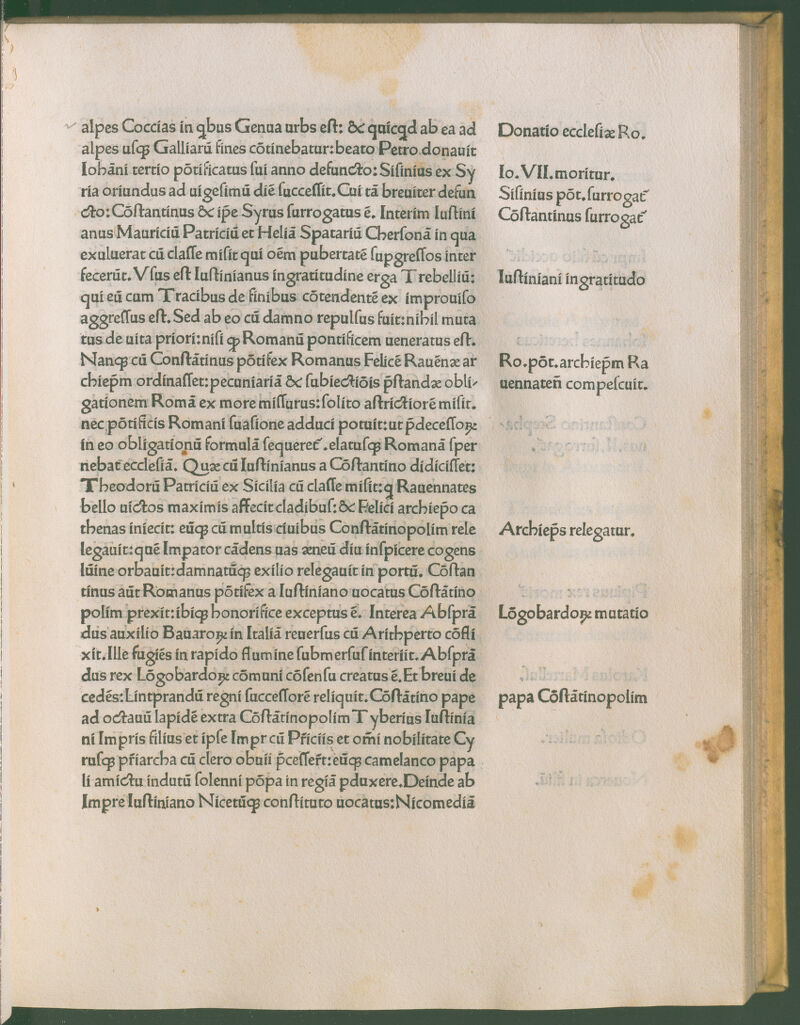 alpes Coccias in qbus Genua urbs eſt: & quicqd ab ea ad
alpes uſqꝫ Galliarū fines cōtinebatur:beato Petro donauit
Iohāni tertio pōtificatus ſui anno defuncto:Siſinius ex Sy
ria oriundus ad uigeſimū diē ſucceſſit. Cui tā breuiter defun
cto:Cōſtantinus & ip̄e Syrus ſurrogatus ē. Interim Iuſtini
anus Mauriciū Patriciū et Heliā Spatariū Cherſonā in qua
exulauerat cū claſſe miſit qui oēm pubertatē ſupgreſſos inter
fecerūt. Vſus eſt Iuſtinianus ingratitudine erga Trebelliū:
qui eū cum Tracibus de finibus cōtendentē ex improuiſo
aggreſſus eſt. Sed ab eo cū damno repulſus fuit:nihil muta
tus de uita priori:niſi ꝙ Romanū pontificem ueneratus eſt.
Nanqꝫ cū Conſtātinus pōtifex Romanus Felicē Rauēnæ ar
chiep̄m ordinaſſet:pecuniariā & ſubiectiōis p̄ſtandæ obli-
gationem Romā ex more miſſurus:ſolito aſtrictiorē miſit.
nec pōtificis Romani ſuaſione adduci potuit:ut p̄deceſſoꝝ
in eo obligationū formulā ſequeret᷑.elatuſqꝫ Romanā ſper
nebat eccleſiā. Quæ cū Iuſtinianus a Cōſtantino didiciſſet:
Theodorū Patriciū ex Sicilia cū claſſe miſit:q Rauennates
bello uictos maximis affecit cladibuſ:& Felici archiep̄o ca
thenas iniecit: eūqꝫ cū multis ciuibus Conſtātinopolim rele
legauit:quē Impator cādens uas æneū diu inſpicere cogens
lūine orbauit:damnatūqꝫ exilio relegauit in portū. Cōſtan
tinus aūt Romanus pōtifex a Iuſtiniano uocatus Cōſtātino
polim prexit:ibiqꝫ honorifice exceptus ē. Interea Abſprā
dus auxilio Bauaroꝝ in Italiā reuerſus cū Arithperto cōfli
xit. Ille fugiēs in rapido flumine ſubmerſuſ interiit. Abſprā
dus rex Lōgobardoꝝ cōmuni cōſenſu creatus ē. Et breui de
cedēs:Lintprandū regni ſucceſſorē reliquit. Cōſtātino pape
ad octauū lapidē extra Cōſtātinopolim Tyberius Iuſtinia
ni Impris filius et ipſe Impr cū Pr̄iciis et om̄i nobilitate Cy
ruſqꝫ pr̄iarcha cū clero obuii p̄ceſſer̄t:eūqꝫ camelanco papa
li amictu indutū ſolenni pōpa in regiā pduxere. Deinde ab
Impre Iuſtiniano Nicetūqꝫ conſtituto uocatus:Nicomediā
Donatio eccleſiæ Ro.
Io. VII. moritur.
Siſinius pōt. ſurrogat᷑
Cōſtantinus ſurrogat᷑
Iuſtiniani ingratitudo
Ro. pōt. archiep̄m Ra
uennaten̄ compeſcuit.
Archiep̄s relegatur.
Lōgobardoꝝ mutatio
papa Cōſtātinopolim